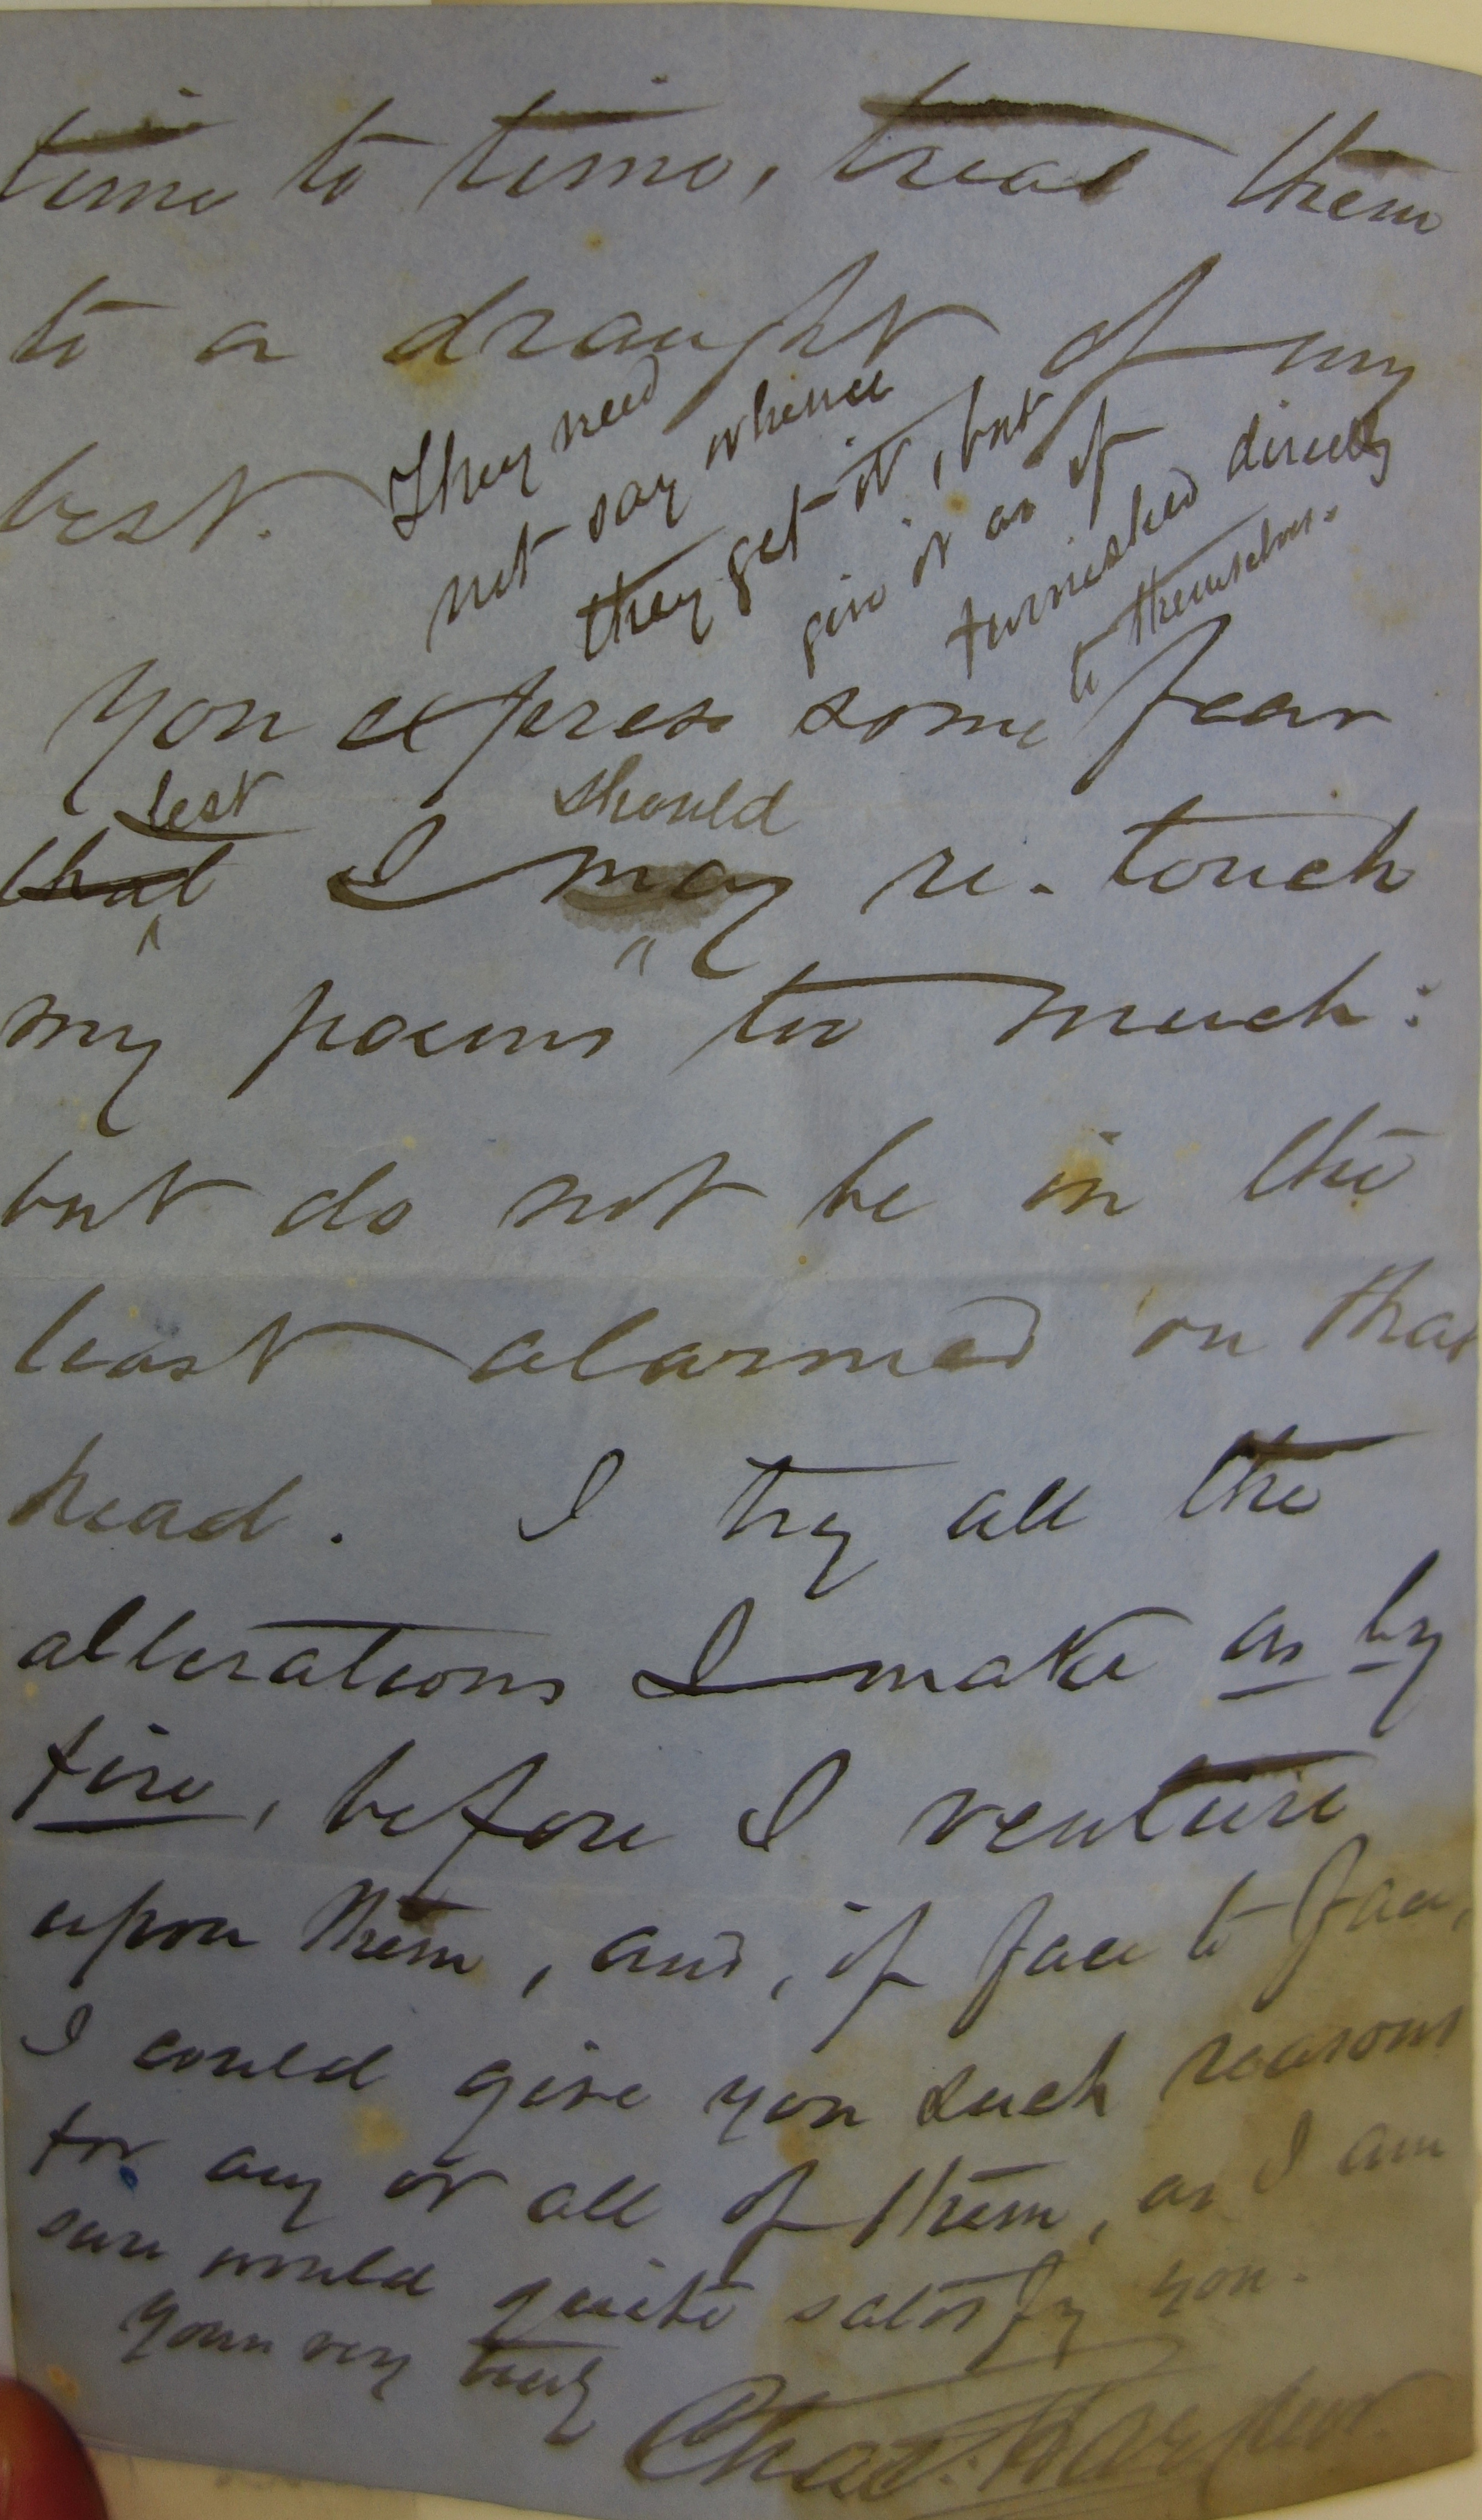 time to time, treat them
to a draught of my
best. They need
not say whence
they get it, but
give it as if
furnished directly
to themselves.
You express some fear
lest should
that I may re-touch
my poems too much:
but do not be in the
least alarmed on that
head. I try all the
alterations I make as by
fire, before I venture
upon them, and, if face to face,
I could give you such reasons
for any or all of them, as I am
sure would quite satisfy you.
Yours very truly
Chas. Harpur